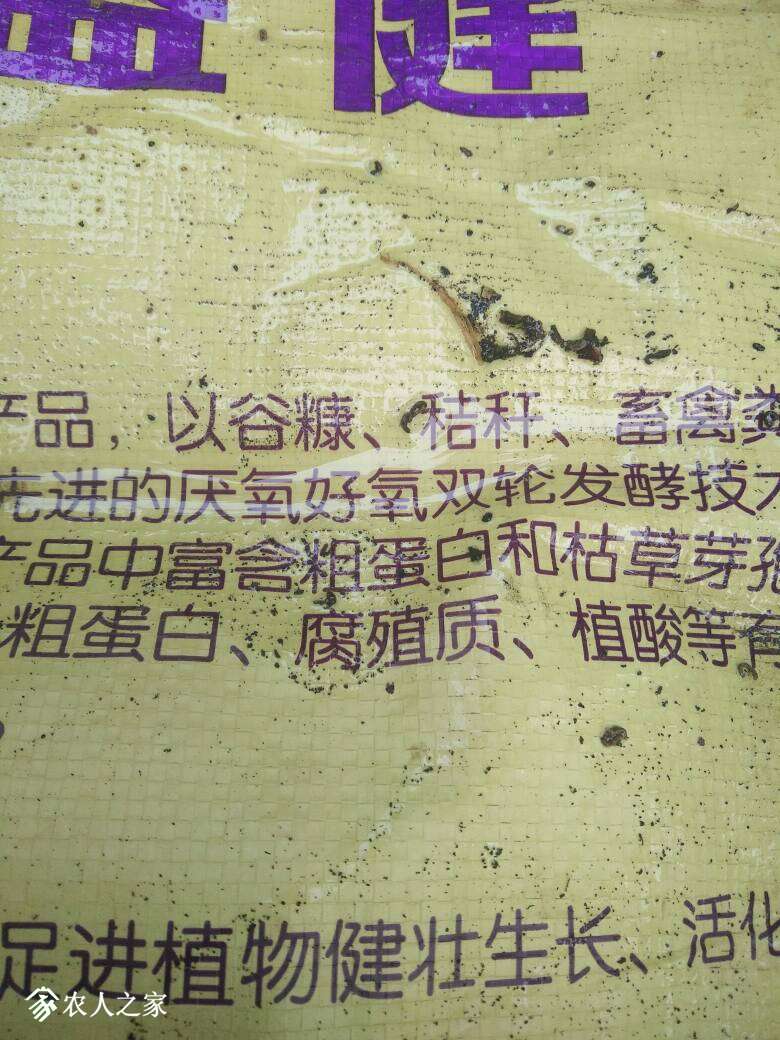 益健
产品，以谷糠、秸秆、畜禽粪
先进的厌氧好氧双轮发酵技术
产品中富含粗蛋白和枯草芽孢
粗蛋白、腐殖质、植酸等有
促进植物健壮生长、活化
农人之家